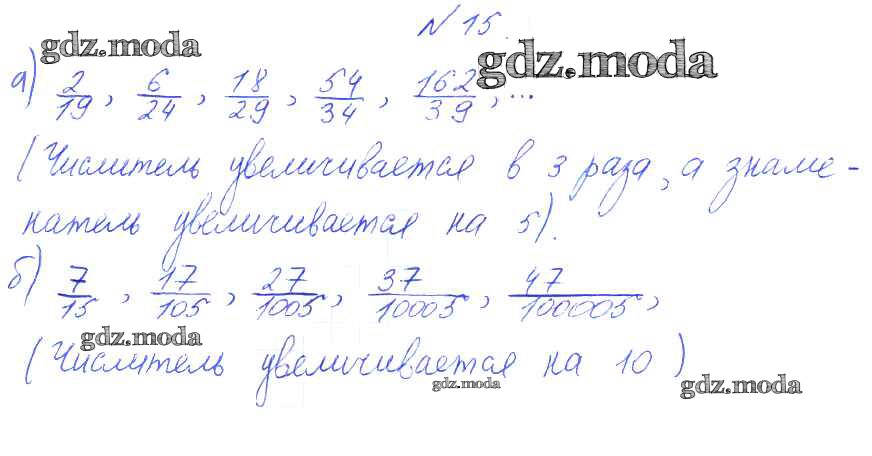 N 15.
gdz.moda
gdz.moda
а) 2/19, 6/24, 18/29, 54/34, 162/39, ...
(Числитель увеличивается в 3 раза, а знаме-
натель увеличивается на 5).
б) 7/15, 17/105, 27/1005, 37/10005, 47/100005,
gdz.moda
(Числитель увеличивается на 10)
gdz.moda
gdz.moda